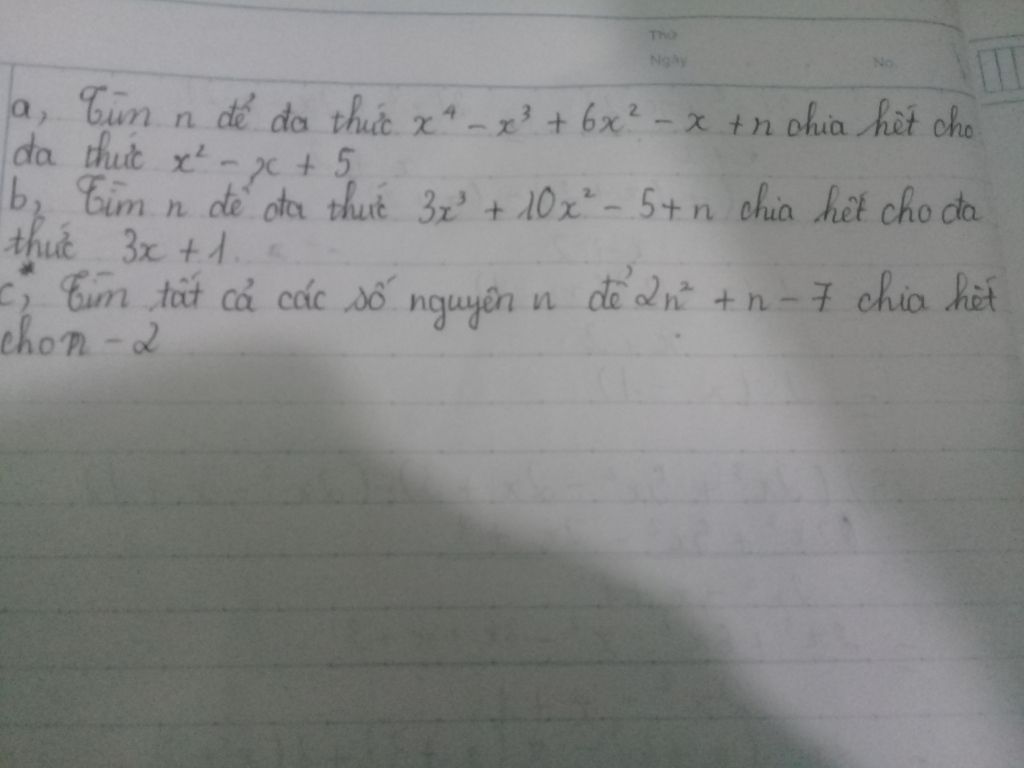 Thứ
Ngày No.
a, Tìm n để đa thức x⁴ - x³ + 6x² - x + n chia hết cho
đa thức x² - x + 5
b, Tìm n để đa thức 3x³ + 10x² - 5 + n chia hết cho đa
thức 3x + 1
c, Tìm tất cả các số nguyên n để 2n² + n - 7 chia hết
cho n - 2